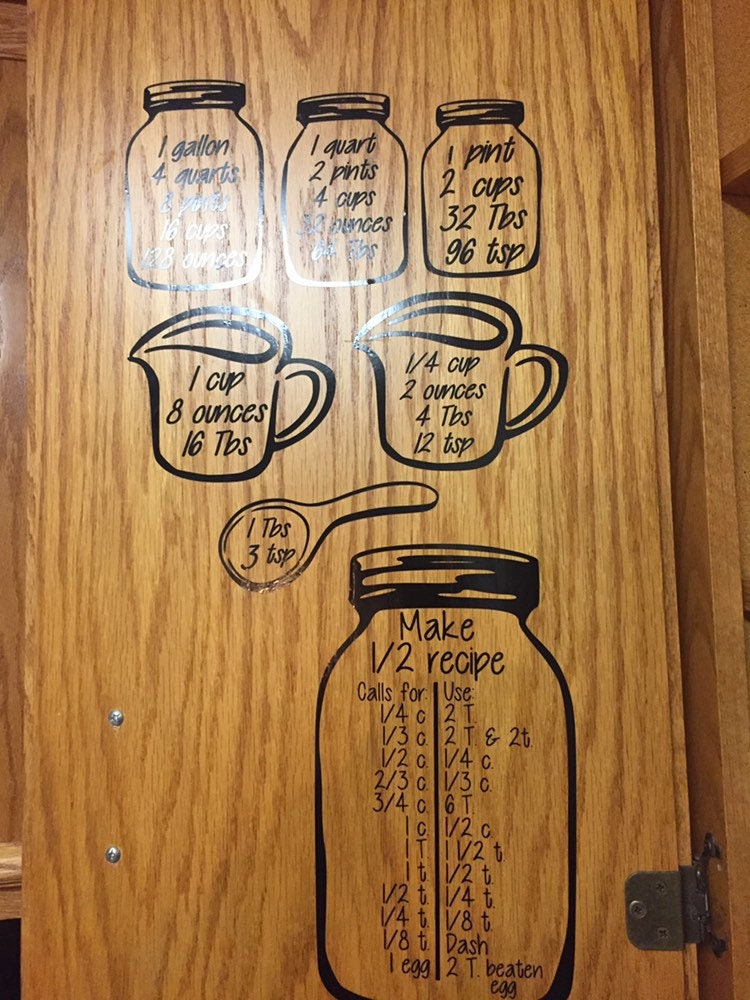 1 gallon
4 quarts
8 pints
16 cups
128 ounces
1 quart
2 pints
4 cups
32 ounces
64 Tbs
1 pint
2 cups
32 Tbs
96 tsp
1 cup
8 ounces
16 Tbs
1/4 cup
2 ounces
4 Tbs
12 tsp
1 Tbs
3 tsp
Make
1/2 recipe
Calls for: Use:
1/4 c. 2 T.
1/3 c. 2 T. & 2t.
1/2 c. 1/4 c.
2/3 c. 1/3 c.
3/4 c. 6 T.
1 c. 1/2 c.
1 T. 1 1/2 t.
1 t. 1/2 t.
1/2 t. 1/4 t.
1/4 t. 1/8 t.
1/8 t. Dash
1 egg 2 T. beaten
egg